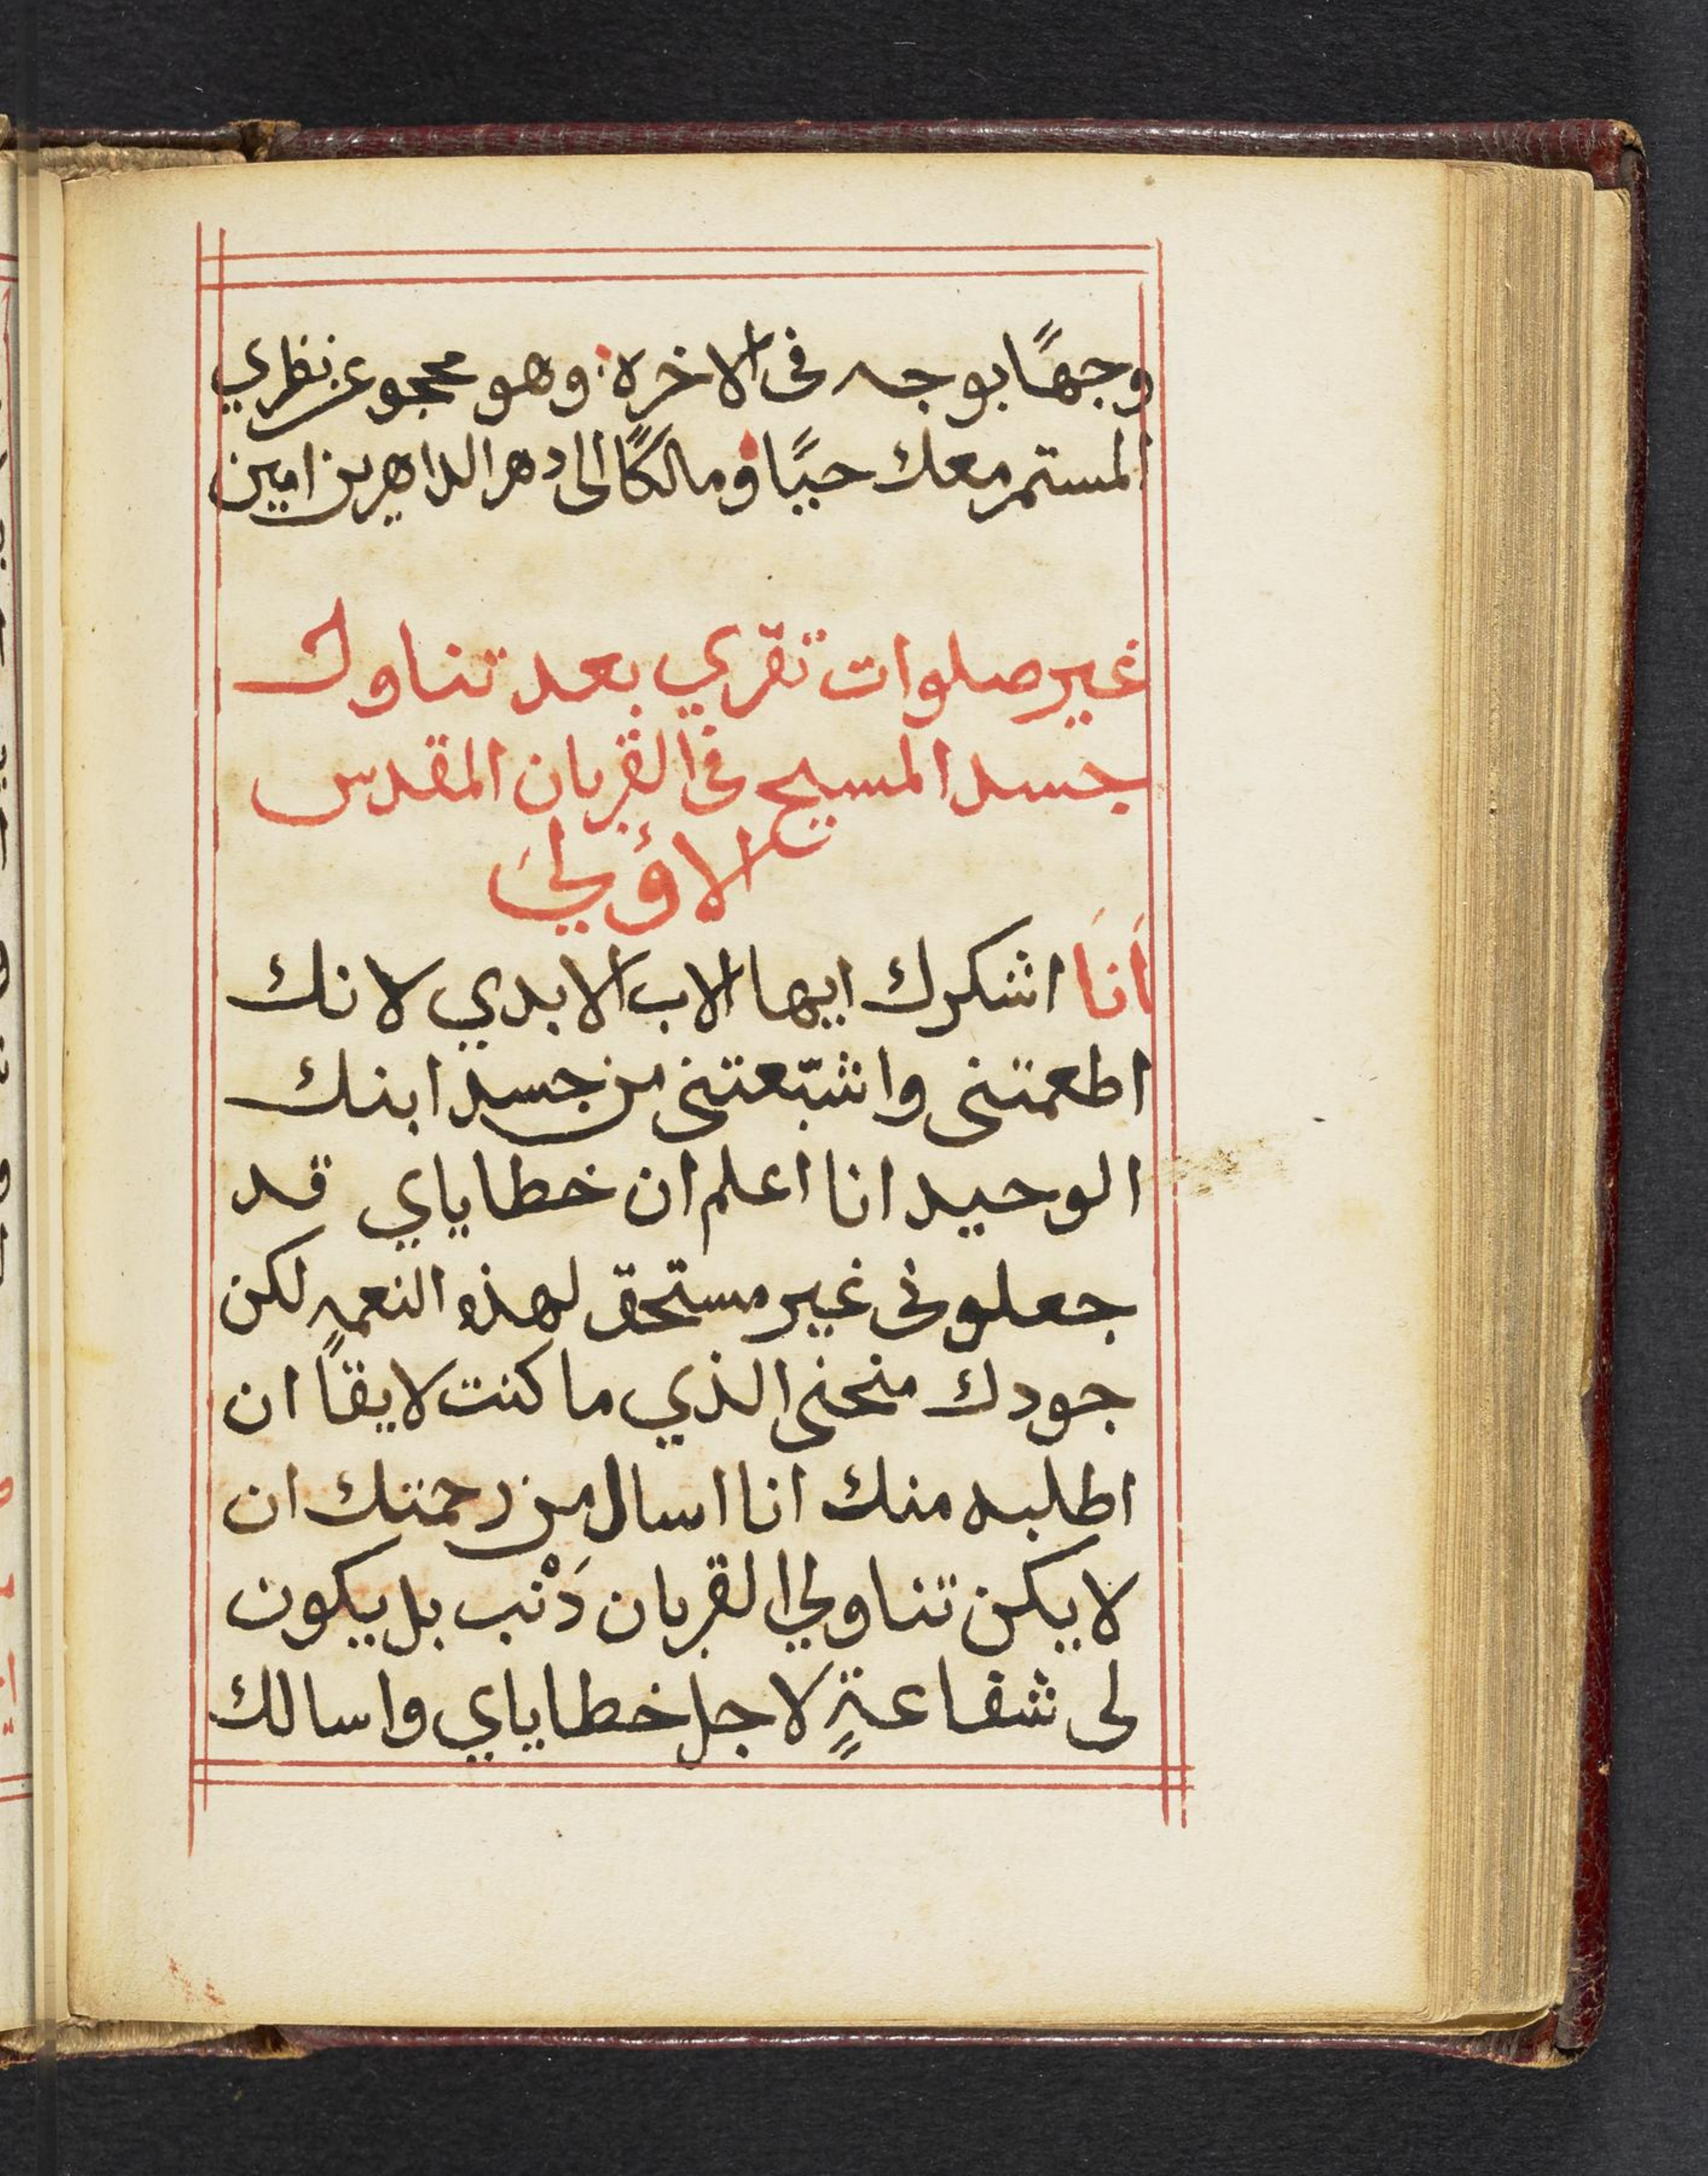 وجهًا بوجه فى الاخره: وهو محجوع عن نظري
المستمر معك حيًا ومالكًا الى دهر الداهرين امين
غير صلوات تقري بعد تناول
جسد المسيح فى القربان المقدس
الاولى
اَنَا اشكرك ايها الاب الابدي لانك
اطعمتنى واشبّعتنى من جسد ابنك
الوحيد انا اعلم ان خطاياي قد
جعلونى غير مستحق لهذه النعمه لكن
جودك منحنى الذي ما كنت لايقًا ان
اطلبه منك انا اسال من رحمتك ان
لا يكن تناولي القربان دَنْب بل يكون
لى شفاعةٍ لاجل خطاياي واسالك